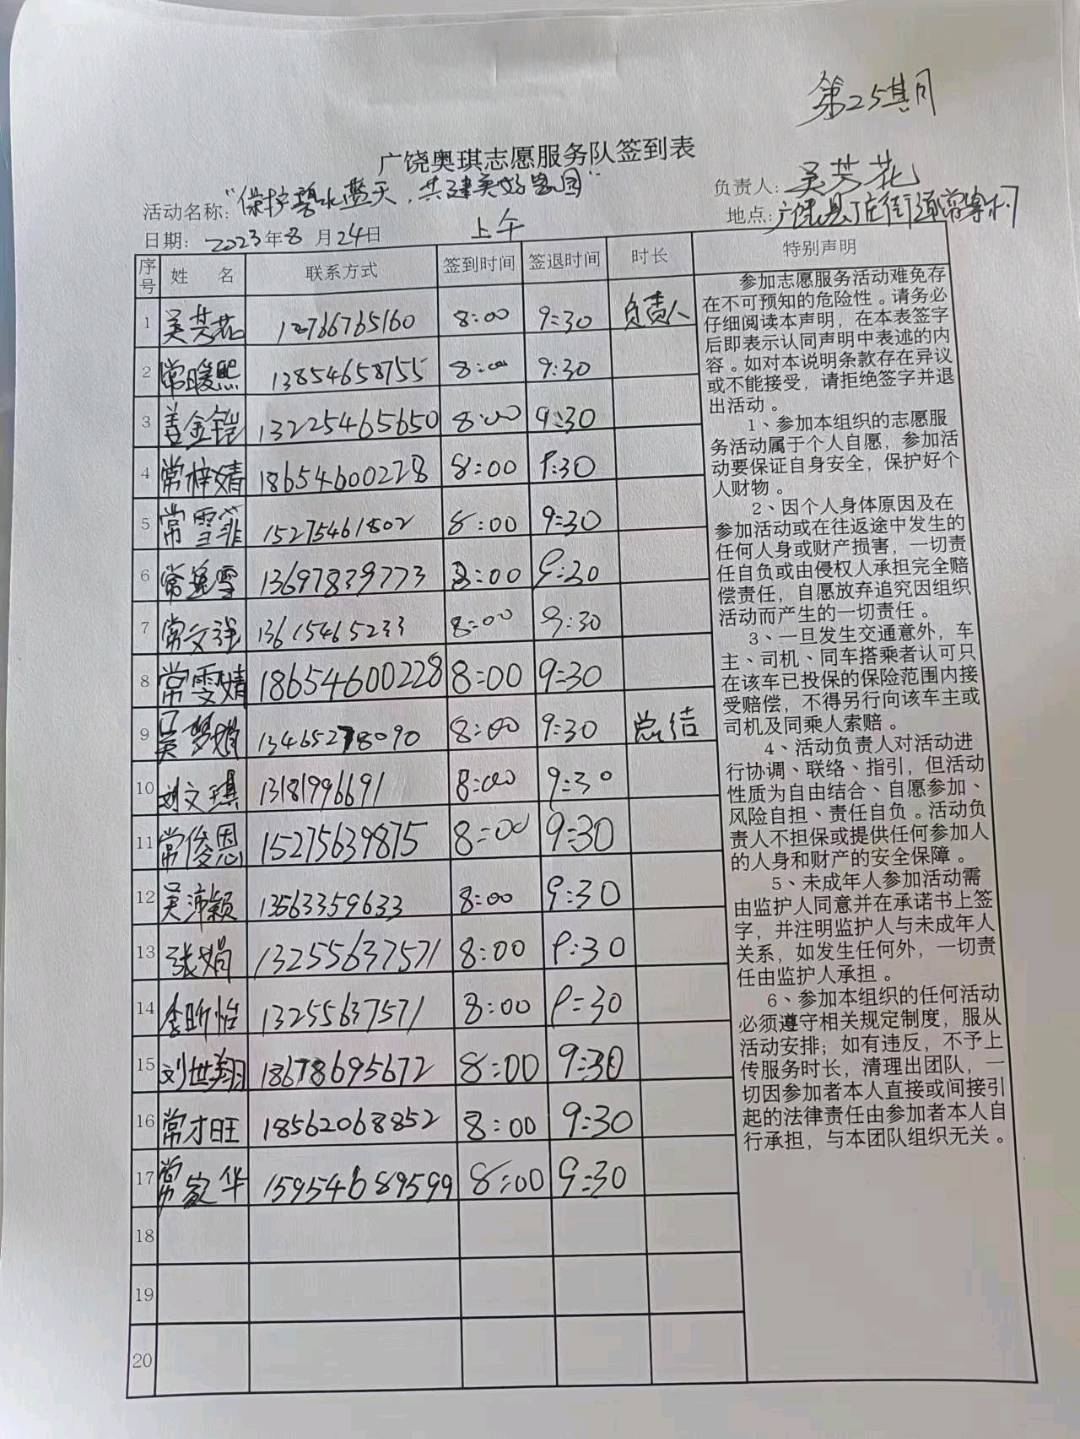 第25期
广饶奥琪志愿服务队签到表
活动名称:“保护碧水蓝天,共建美好家园”
负责人:吴芬花
日期:2023年8月24日 上午
地点:广饶县丁庄街道常寨村
序号 姓 名 联系方式 签到时间 签退时间 时长 特别声明
1 吴芬花 13766765160 8:00 9:30 负责人
2 常暖熙 13854658755 8:00 9:30
3 姜金铠 13225465650 8:00 9:30
4 常梓婧 18654600228 8:00 9:30
5 常雪菲 15275461802 8:00 9:30
6 常雪 13697839773 8:00 9:30
7 常文强 13615465233 8:00 9:30
8 常雯婧 18654600228 8:00 9:30
9 吴梦娟 13465278090 8:00 9:30 总结
10 刘文琪 13181996691 8:00 9:30
11 常俊恩 15275639875 8:00 9:30
12 吴沛颖 13563359633 8:00 9:30
13 张娟 13255637571 8:00 9:30
14 李昕怡 13255637571 8:00 9:30
15 刘世翔 18678695672 8:00 9:30
16 常才旺 18562068852 8:00 9:30
17 常家华 15954689599 8:00 9:30
18
19
20
参加志愿服务活动难免存
在不可预知的危险性。请务必
仔细阅读本声明，在本表签字
后即表示认同声明中表述的内
容。如对本说明条款存在异议
或不能接受，请拒绝签字并退
出活动。
1、参加本组织的志愿服
务活动属于个人自愿，参加活
动要保证自身安全，保护好个
人财物。
2、因个人身体原因及在
参加活动或在往返途中发生的
任何人身或财产损害，一切责
任自负或由侵权人承担完全赔
偿责任，自愿放弃追究因组织
活动而产生的一切责任。
3、一旦发生交通意外，车
主、司机、同车搭乘者认可只
在该车已投保的保险范围内接
受赔偿，不得另行向该车主或
司机及同乘人索赔。
4、活动负责人对活动进
行协调、联络、指引，但活动
性质为自由结合、自愿参加、
风险自担、责任自负。活动负
责人不担保或提供任何参加人
的人身和财产的安全保障。
5、未成年人参加活动需
由监护人同意并在承诺书上签
字，并注明监护人与未成年人
关系，如发生任何外，一切责
任由监护人承担。
6、参加本组织的任何活动
必须遵守相关规定制度，服从
活动安排；如有违反，不予上
传服务时长，清理出团队，一
切因参加者本人直接或间接引
起的法律责任由参加者本人自
行承担，与本团队组织无关。